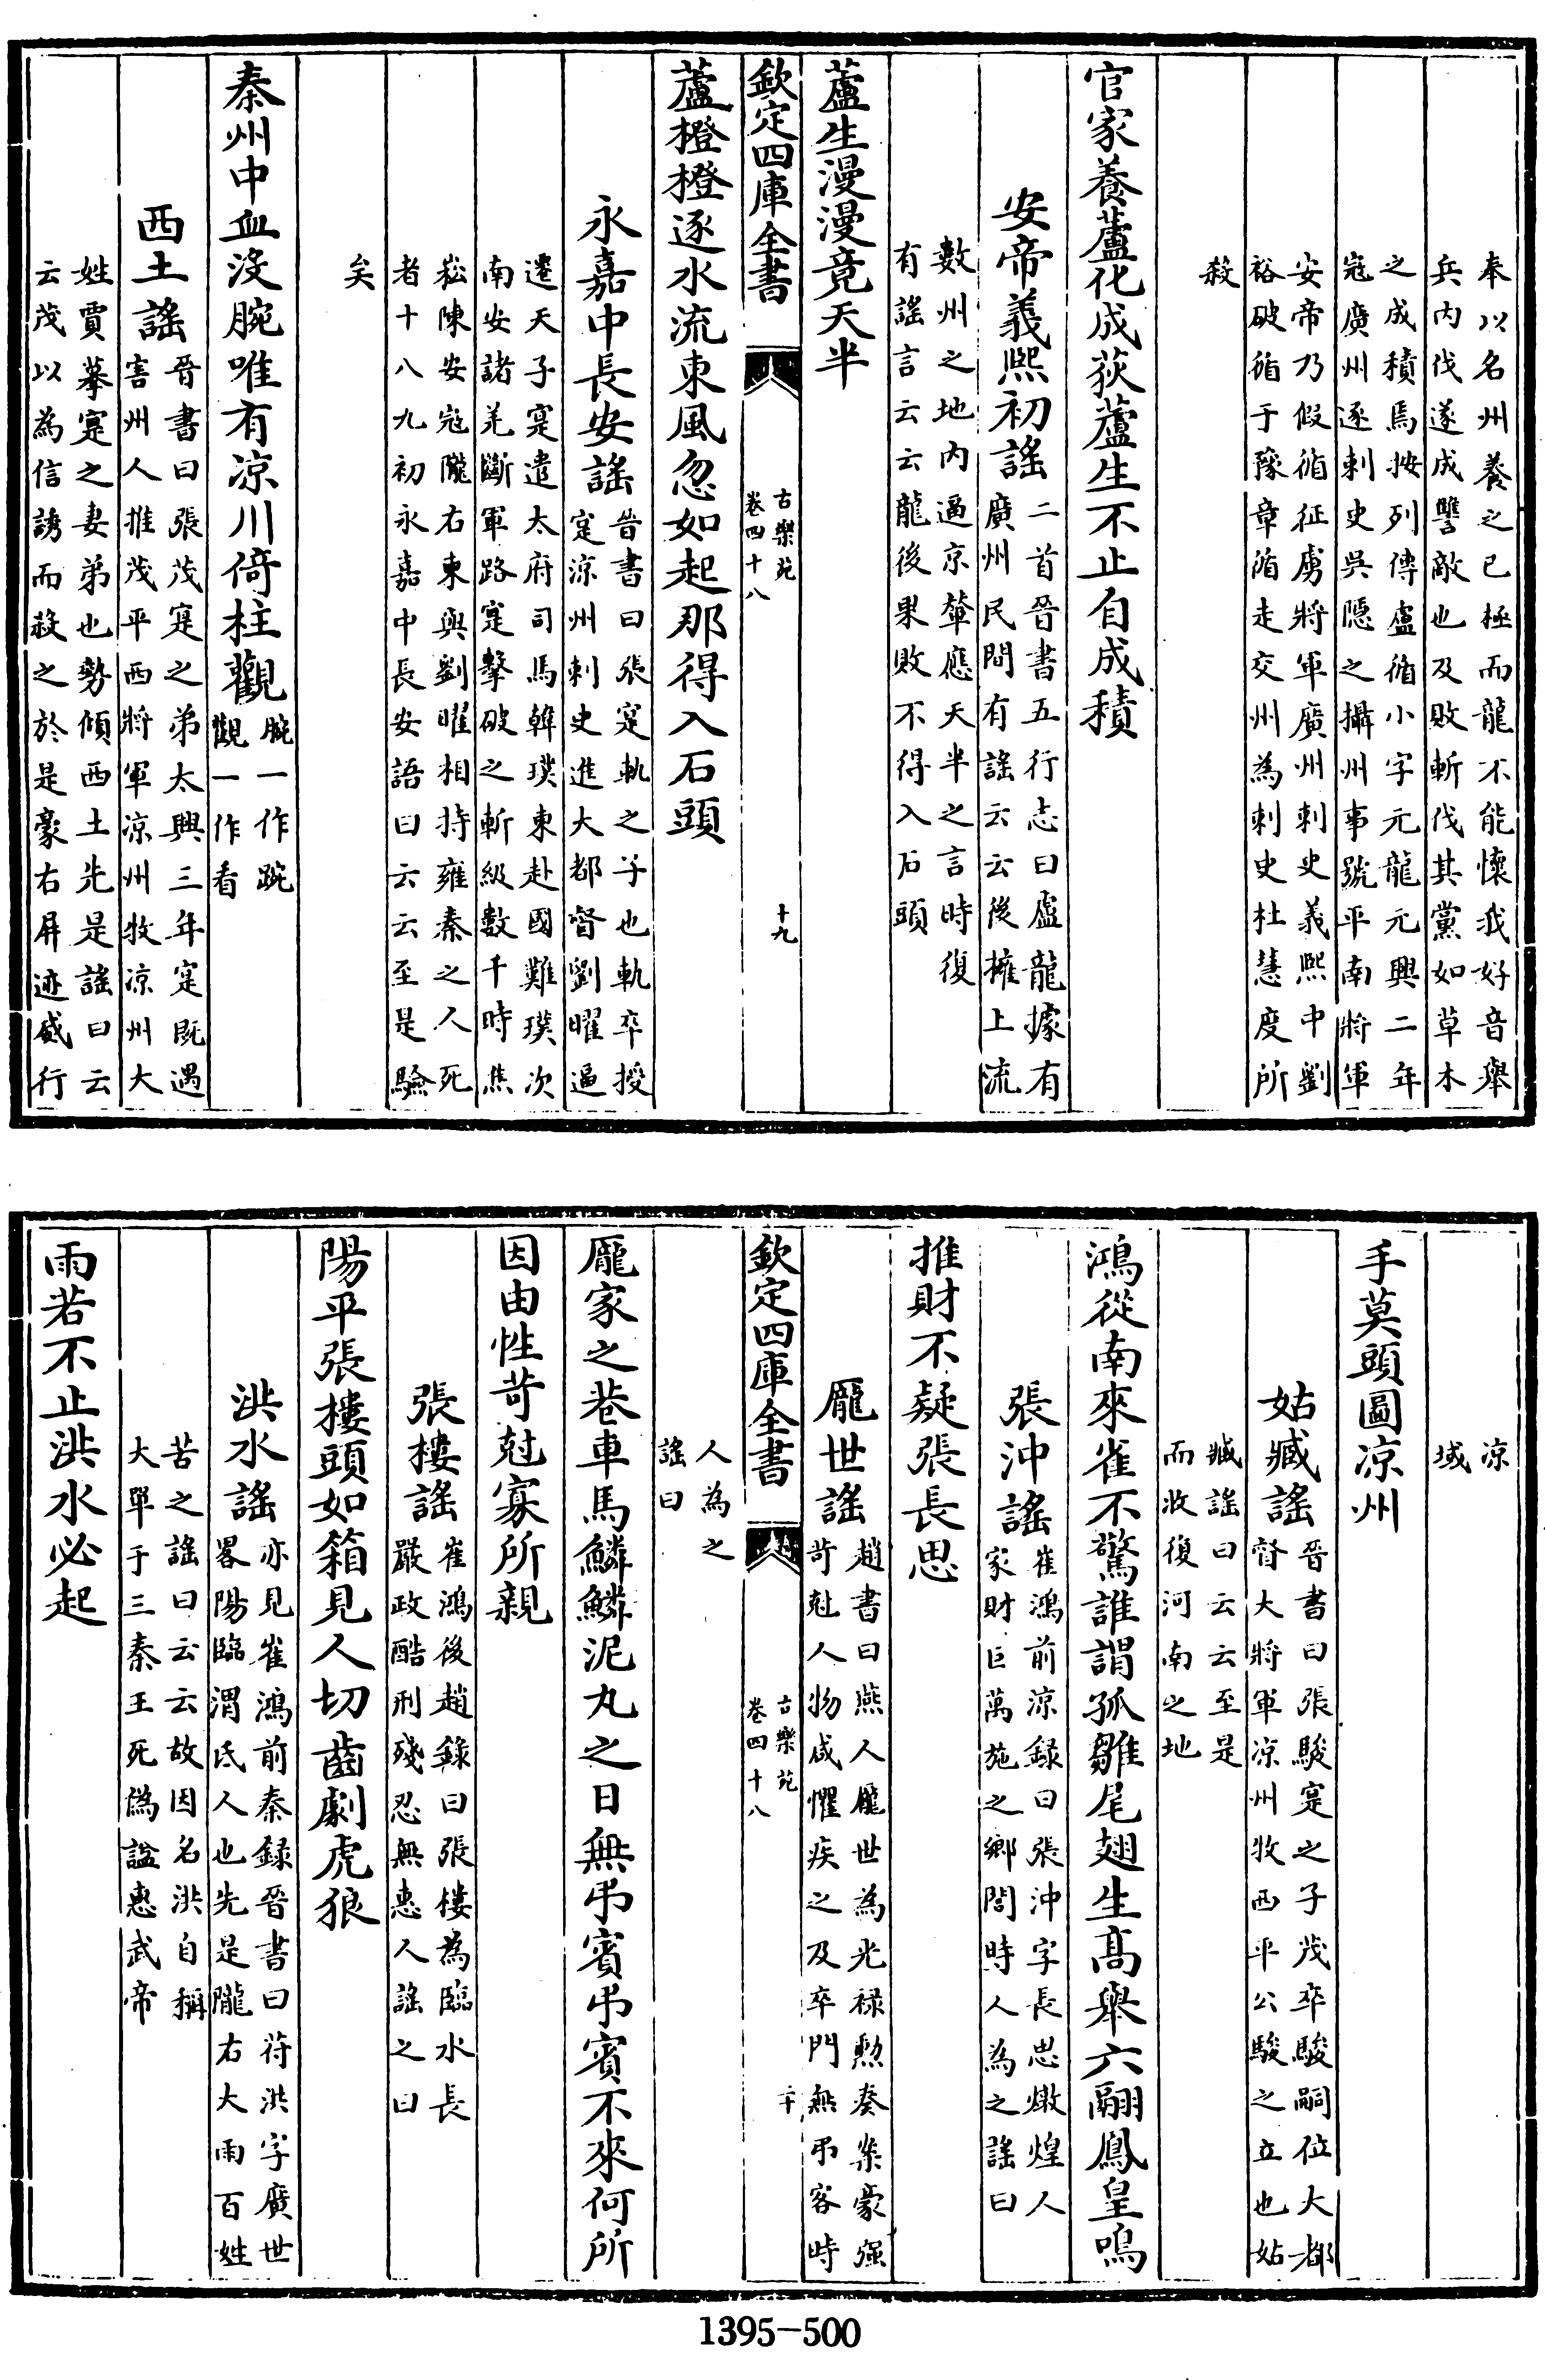 奉以名州養之已極而龍不能懷我好音舉
兵内伐遂成讐敵也及敗斬伐其黨如草木
之成積焉按列傳盧循小字元龍元興二年
寇廣州逐刺史吳隱之攝州事號平南將軍
安帝乃假循征虜將軍廣州刺史義熙中劉
裕破循于豫章循走交州為刺史杜慧度所
殺
官家養蘆化成荻蘆生不止自成積
安帝義熙初謠
二首晉書五行志曰盧龍據有
廣州民間有謠云云後擁上流
數州之地内逼京輦應天半之言時復
有謠言云云龍後果敗不得入石頭
蘆生漫漫竟天半
欽定四庫全書
古樂苑
卷四十八
十九
蘆橙橙逐水流東風忽如起那得入石頭
永嘉中長安謠
晉書曰張寔軌之子也軌卒授
寔涼州刺史進大都督劉曜逼
遷天子寔遣太府司馬韓璞東赴國難璞次
南安諸羌斷軍路寔擊破之斬級數千時焦
崧陳安寇隴右東與劉曜相持雍秦之人死
者十八九初永嘉中長安語曰云云至是驗
矣
秦州中血没腕唯有凉川倚柱觀
腕一作踠
觀一作看
西土謠
晉書曰張茂寔之弟太興三年寔既遇
害州人推茂平西將軍凉州牧凉州大
姓賈摹寔之妻弟也勢傾西土先是謠曰云
云茂以為信誘而殺之於是豪右屏迹威行
凉
域
手莫頭圖凉州
姑臧謠
晉書曰張駿寔之子茂卒駿嗣位大都
督大將軍凉州牧西平公駿之立也姑
臧謠曰云云至是
而收復河南之地
鴻從南來雀不驚誰謂孤雛尾翅生髙舉六翮鳳皇鳴
張沖謠
崔鴻前涼録曰張沖字長思燉煌人
家財巨萬施之鄉閭時人為之謠曰
推財不疑張長思
厖世謠
趙書曰燕人厖世為光禄勲奏案豪强
苛尅人物咸懼疾之及卒門無弔客時
欽定四庫全書
古樂苑
卷四十八
二十
人為之
謠曰
厖家之巷車馬鱗鱗泥丸之日無弔賓弔賓不來何所
因由性苛尅寡所親
張樓謠
崔鴻後趙錄曰張樓為臨水長
嚴政酷刑殘忍無惠人謠之曰
陽平張樓頭如箱見人切齒劇虎狼
洪水謠
亦見崔鴻前秦録晉書曰苻洪字廣世
畧陽臨渭氐人也先是隴右大雨百姓
苦之謠曰云云故因名洪自稱
大單于三秦王死偽諡惠武帝
雨若不止洪水必起
1395-500